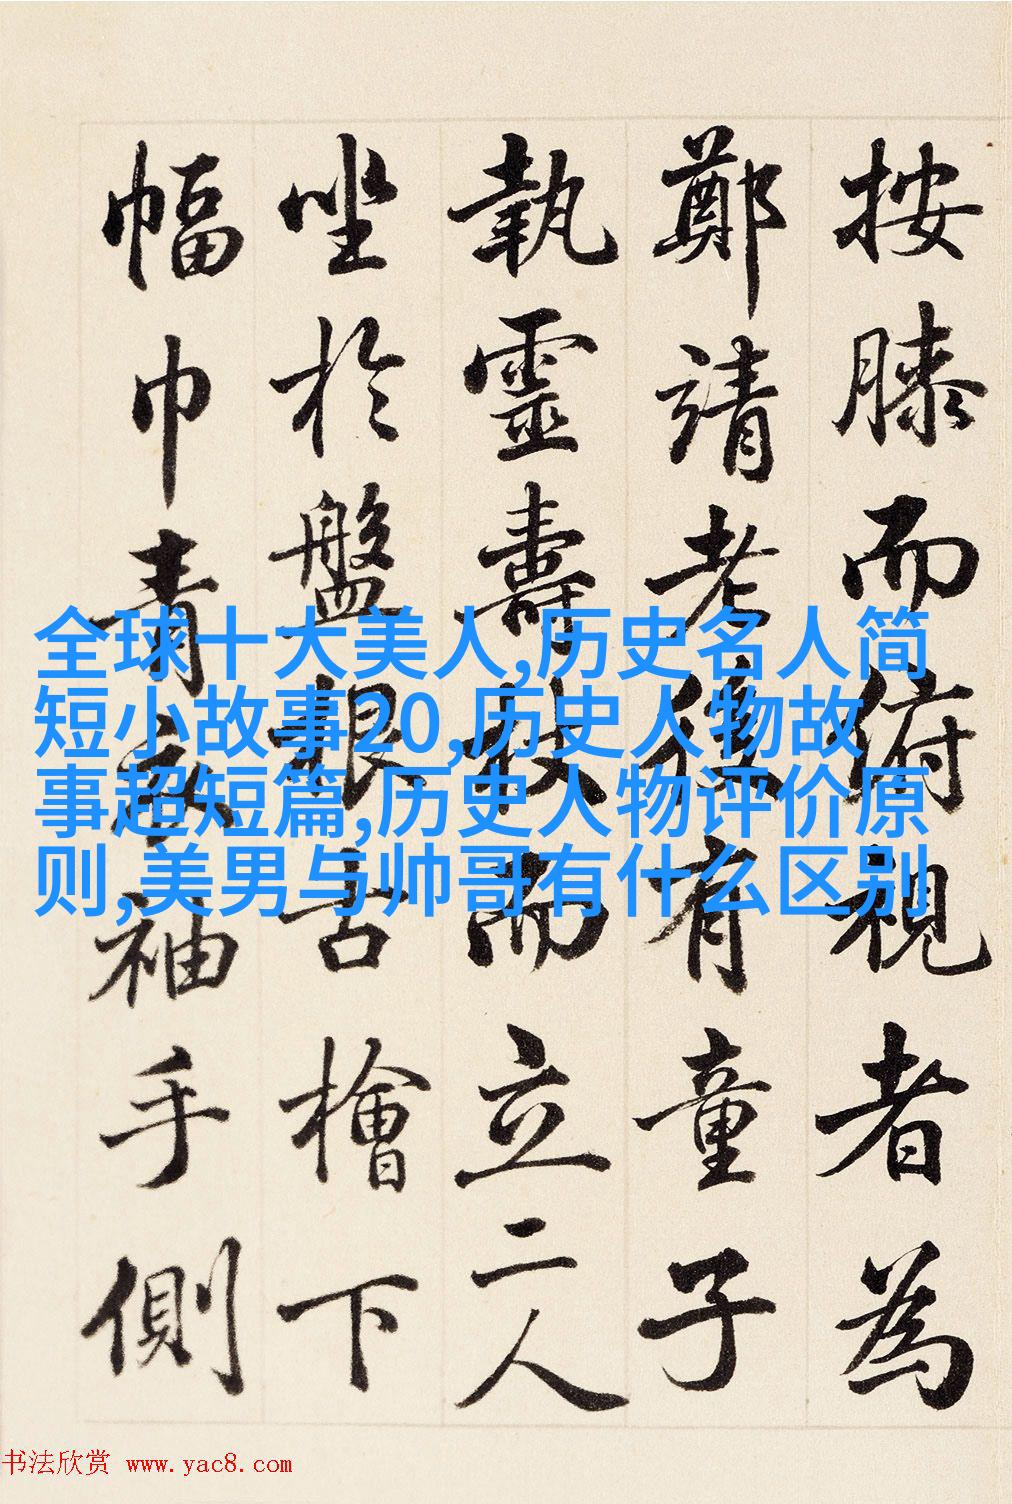 按膝而俯視者為
鄭靖老後有童子
執靈壽杖而立二人
坐於盤根古檜下
幅巾青衣袖手側
全球十大美人,历史名人简
短小故事20,历史人物故
事超短篇,历史人物评价原
则,美男与帅哥有什么区别
书法欣赏 www.yac8.com